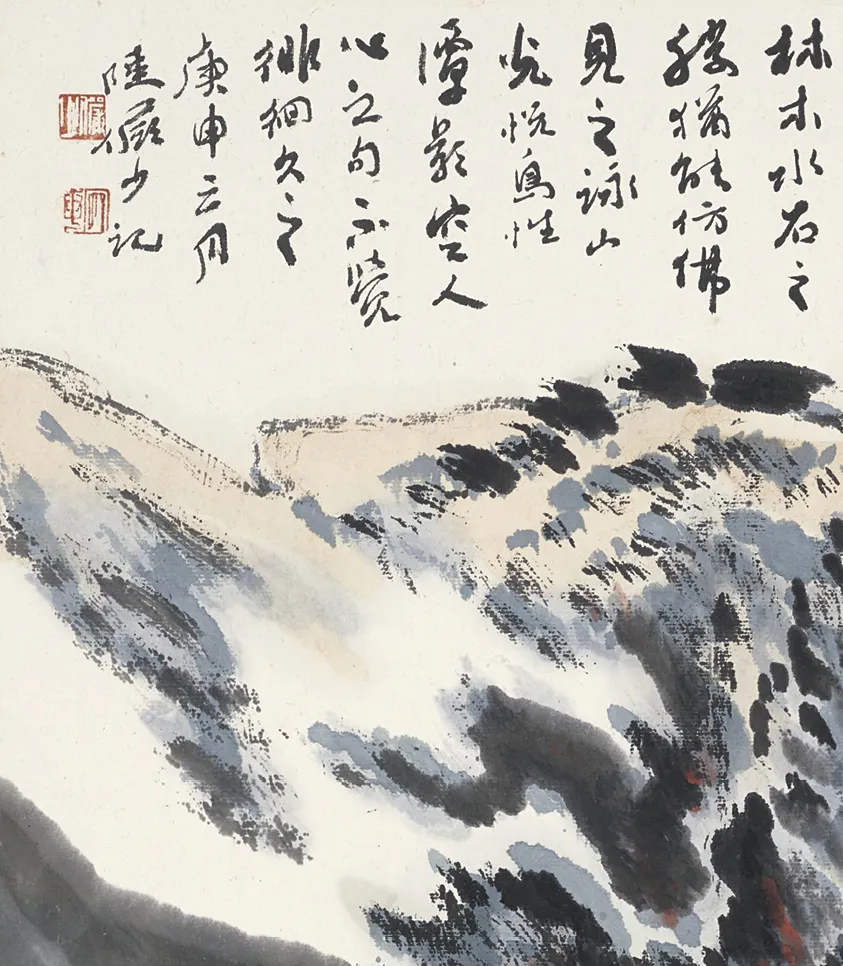 林木水石之
勝猶能仿佛
見之詠山
光悅鳥性
潭影空人
心之句不覺
徘徊久之
庚申三月
陸儼少記